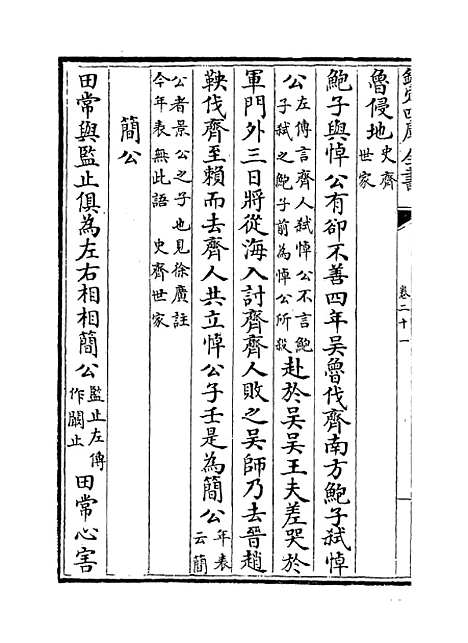 欽定四庫全書
卷二十一
魯侵地史齊世家
鮑子與悼公有卻不善四年吳魯伐齊南方鮑子弒悼
公左傳言齊人弒悼公不言鮑子弒之鮑子前為悼公所殺赴於吳吳王夫差哭於
軍門外三日將從海入討齊齊人敗之吳師乃去晉趙
鞅伐齊至賴而去齊人共立悼公子壬是為簡公年表云簡
公者景公之子也見徐廣註今年表無此語 史齊世家
簡公
田常與監止俱為左右相相簡公監止左傳作闞止田常心害